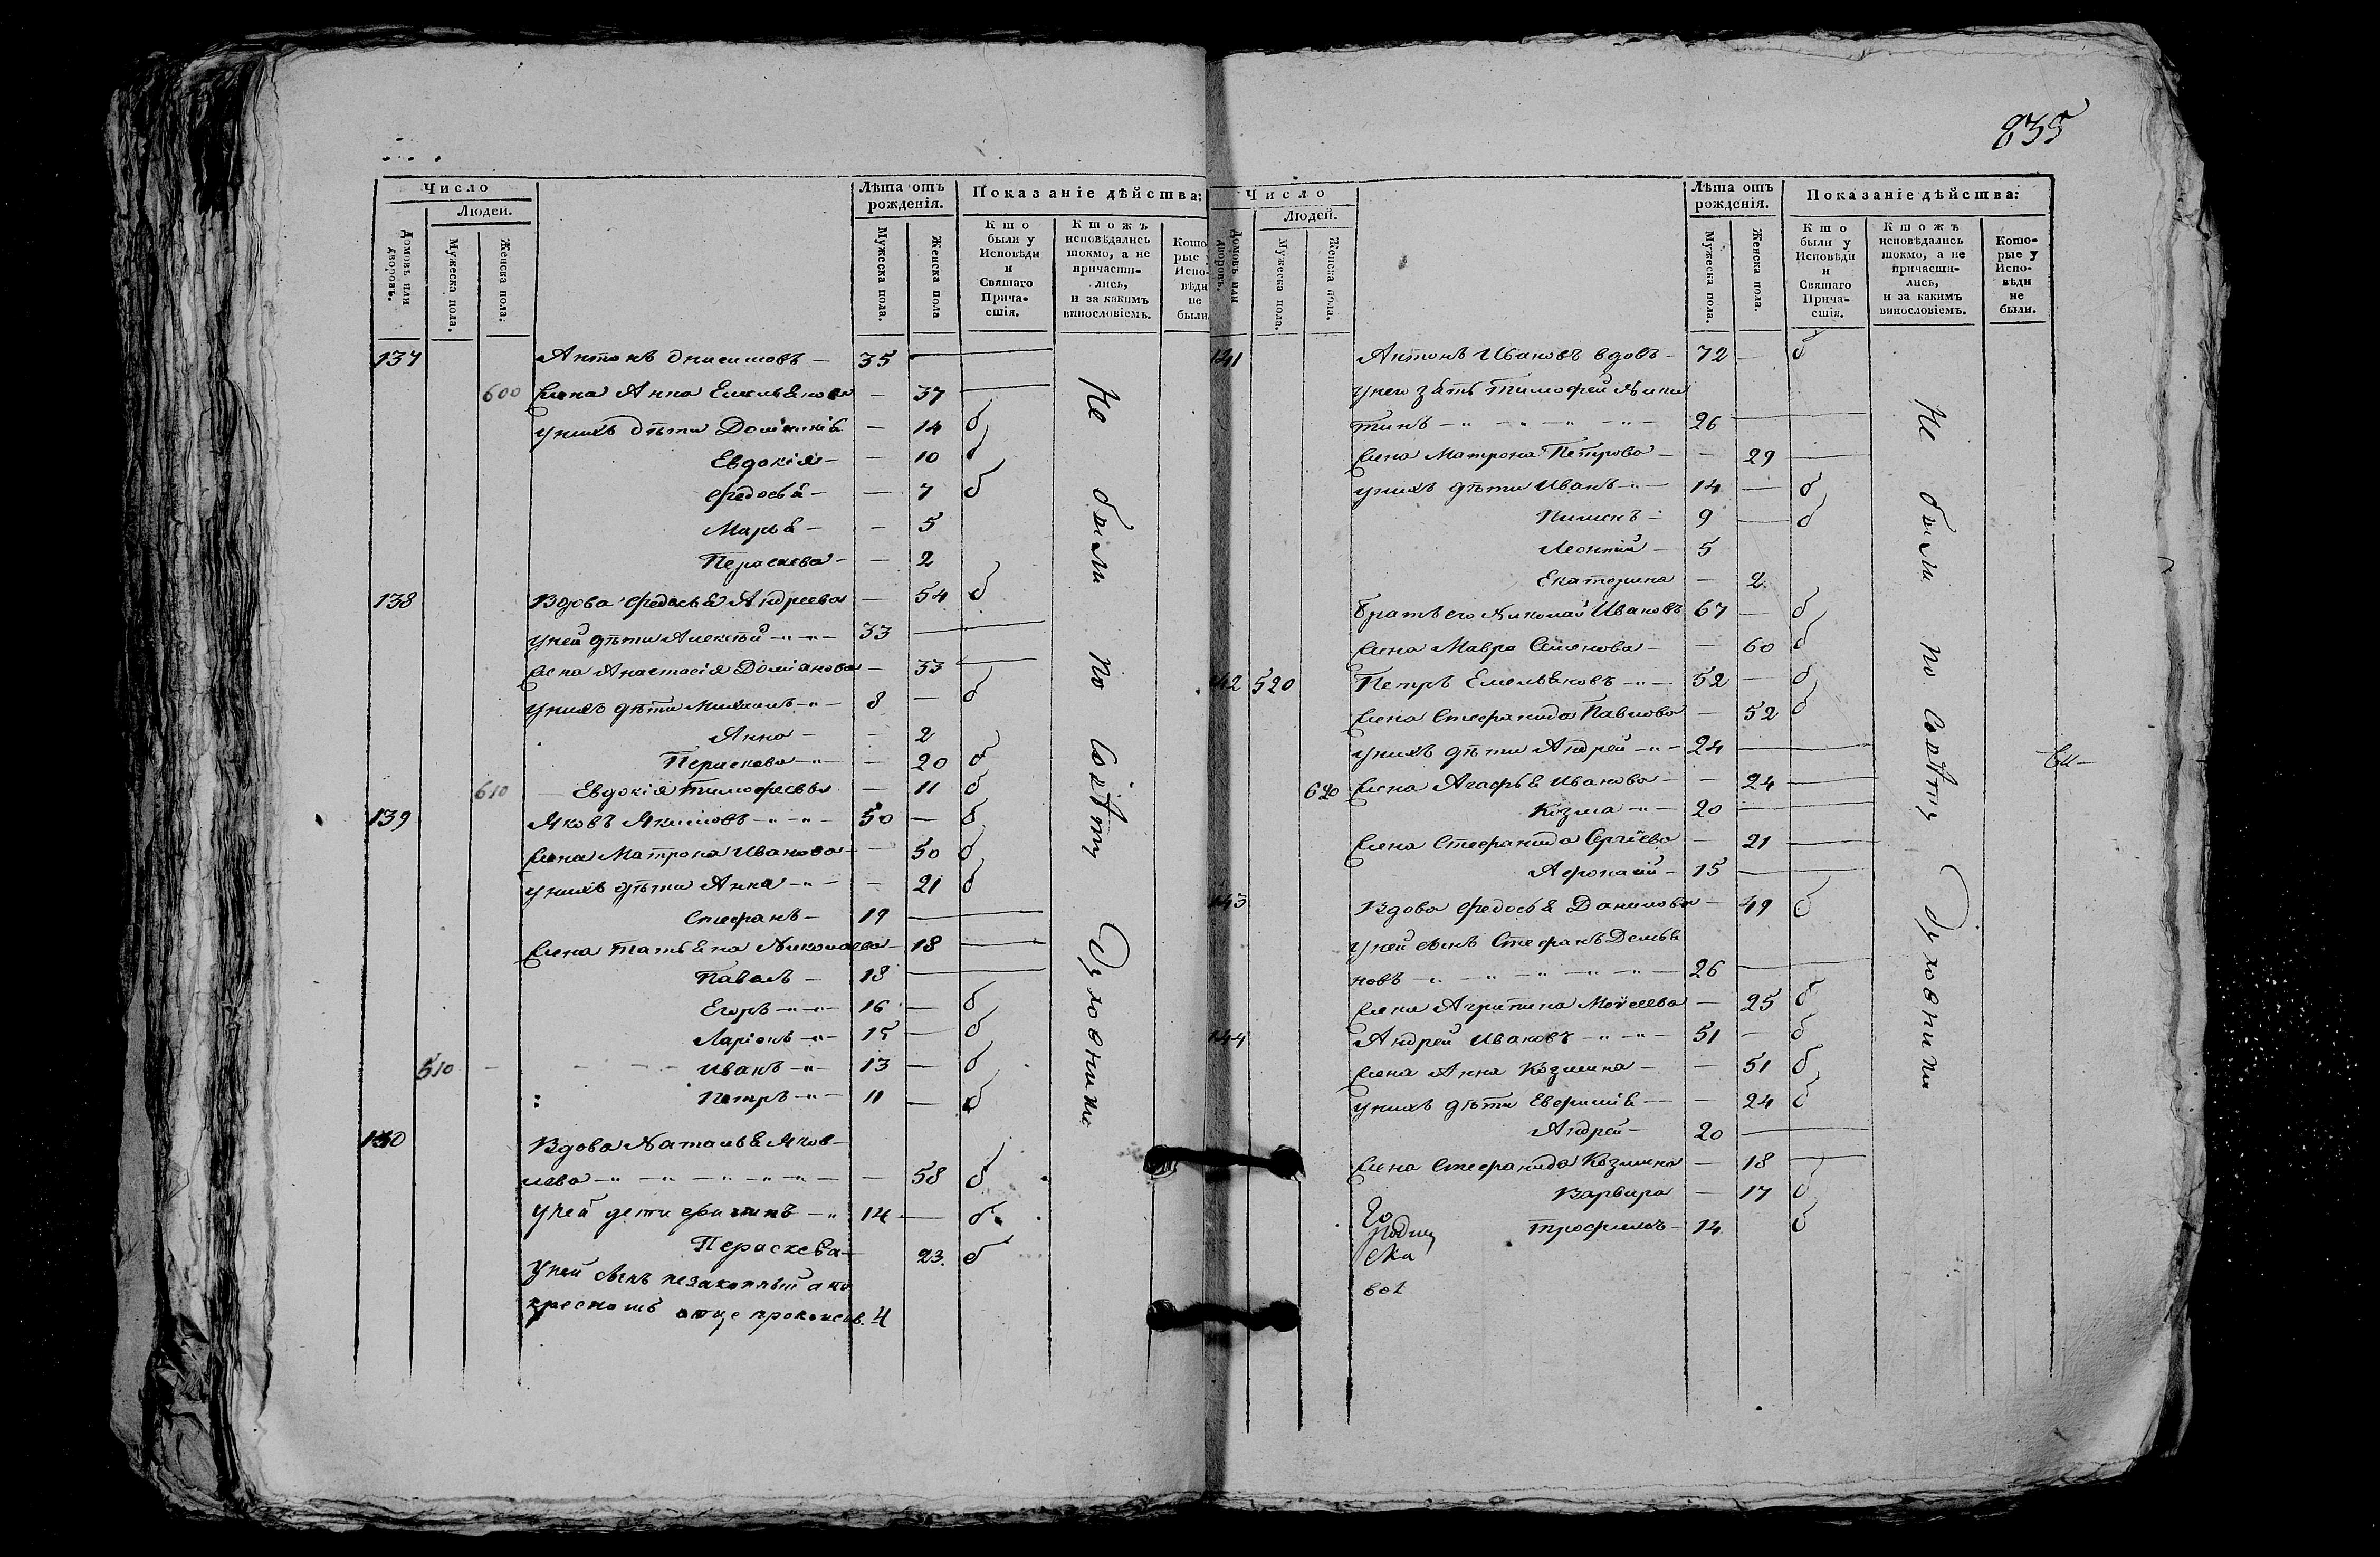 835
Число
Людей.
Домовъ или дворовъ.
Мужеска пола.
Женска пола.
Лѣта отъ рожденія.
Мужеска пола.
Женска пола
Показаніе дѣйства:
Кто были у Исповѣди и Святаго Прича-стія.
Ктожъ исповѣдались токмо, а не причасти-лись, и за какимъ винословіемъ.
Кото-рые Испо-вѣди не были.
137 Антонъ Онисимовъ — 35
600 Жена Анна Емельянова — 37
у нихъ дѣти Домникія — 14 б
Евдокія — 10 б
Федосья — 7 б
Марья — 5
Пераскева — 2
138 Вдова Федосья Андреева — 54 б
у ней дѣти Алексѣй — 33
Жена Анастасія Доміанова — 33
у нихъ дѣти Михаилъ — 8 — б
Анна — 2
Пераскева — 20 б
610 Евдокія Тимофеева — 11 б
139 Яковъ Якимовъ — 50 — б
Жена Матрона Иванова — 50 б
у нихъ дѣти Анна — 21 б
Стефанъ — 19
Жена Татьяна Николаева — 18
Павелъ — 18
Егоръ — 16 — б
Ларіонъ — 15 — б
510 Иванъ — 13 — б
Петръ — 11 — б
140 Вдова Наталья Яков-
лева — 58 б
у ней дети Филипъ — 14 — б
Пераскева — 23 б
у ней сынъ незаконный а по
крестномъ отце Прокопьев. 4
Не были по совѣту Духовника
Число
Людей.
Домовъ или дворовъ.
Мужеска пола.
Женска пола.
Лѣта отъ рожденія.
Мужеска пола.
Женска пола.
Показаніе дѣйства:
Кто были у Исповѣди и Святаго Прича-стія.
Ктожъ исповѣдались токмо, а не причасти-лись, и за какимъ винословіемъ.
Кото-рые у Испо-вѣди не были.
141 Антонъ Ивановъ вдовъ — 72 — б
у него зять Тимофей Ники
тинъ — 26
Жена Матрона Петрова — 29
у нихъ дѣти Иванъ — 14 — б
Пименъ — 9 — б
Леонтій — 5
Екатерина — 2
братъ его Николай Ивановъ 67 — б
Жена Мавра Семенова — 60 б
142 520 Петръ Емельяновъ — 52 — б
Жена Стефанида Павлова — 52 б
у нихъ дѣти Андрей — 24
620 Жена Агафья Иванова — 24
Козма — 20
Жена Стефанида Сергіева — 21
Афонасій — 15
143 Вдова Федосья Данилова — 49 б
у ней сынъ Стефанъ Демья
новъ — 26
Жена Агрипина Моисеева — 25 б
144 Андрей Ивановъ — 51 — б
Жена Анна Козмина — 51 б
у нихъ дѣти Евфимія — 24 б
Андрей — 20
Жена Стефанида Козмина — 18
Варвара — 17 б
Трофимъ — 14 б
Не были по совѣту Духовника